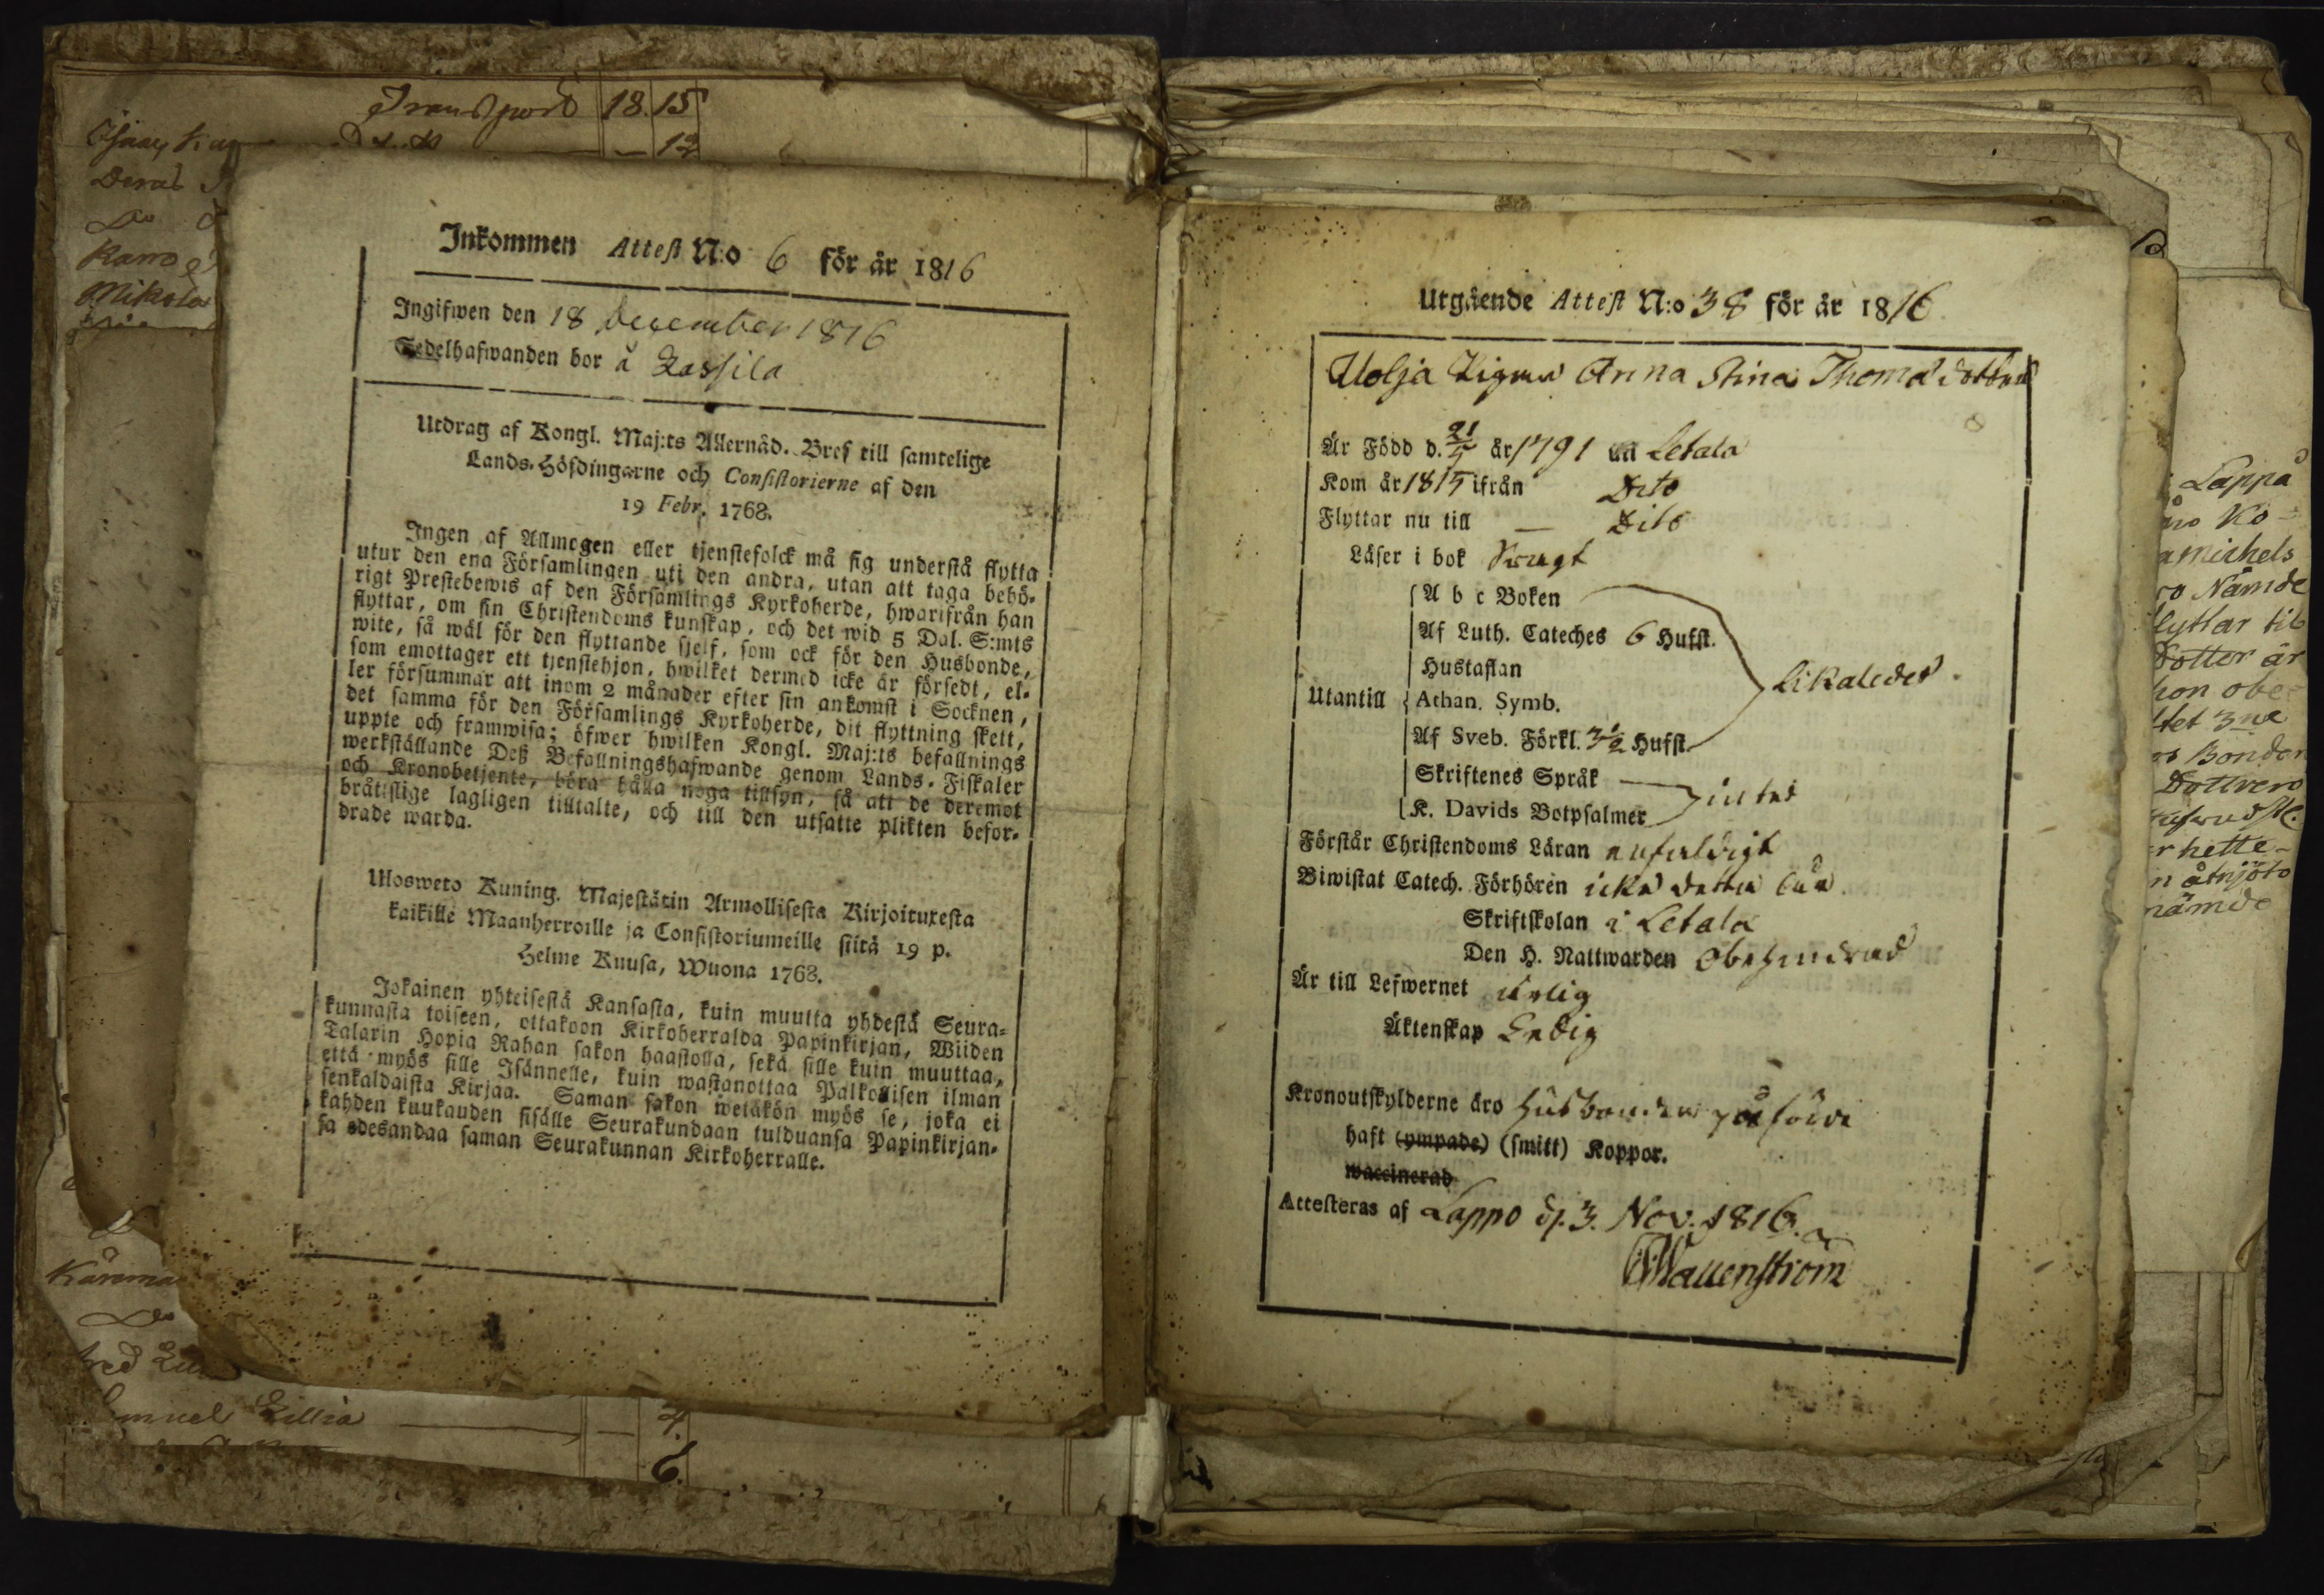 Transport 18.15
12
Karro
Mikola
Inkommen Attest N:o 6 för år 1816
Ingifwen den 18 december 1816
Sedelhafwanden bor å Kassila
Utdrag af Kongl. Maj:ts Allernåd. Bref till samtelige
Lands-Höfdingarne och Consistorierne af den
19 Febr. 1768.
Ingen af Allmogen eller tjenstefolck må sig understå flytta
utur den ena Församlingen uti den andra, utan att taga behö-
rigt Prestebewis af den Församlings Kyrkoherde, hwarifrån han
flyttar, om sin Christendoms kunskap, och det wid 5 Dal. S:mts
wite, så wäl för den flyttande sjelf, som ock för den Husbonde,
som emottager ett tjenstehjon, hwilket dermed icke är försedt, el-
ler försummar att inom 2 månader efter sin ankomst i Socknen,
det samma för den Församlings Kyrkoherde, dit flyttning skett,
uppte och framwisa; öfwer hwilken Kongl. Maj:ts befallnings
werkställande Deß Befallningshafwande genom Lands-Fiskaler
och Kronobetjente, böra hålla noga tillsyn, så att de deremot
bråtslige lagligen tilltalte, och till den utsatte plikten befor-
drade warda.
Ulosweto Kuning. Majestätin Armollisesta Kirjoituxesta
kaikille Maanherroille ja Consistoriumeille siitä 19 p.
Helme Kuusa, Wuona 1768.
Jokainen yhteisestä Kansasta, kuin muutta yhdestä Seura-
kunnasta toiseen, ottakoon Kirkoherralda Papinkirjan, Wiiden
Talarin Hopia Rahan sakon haastolla, sekä sille kuin muuttaa,
että myös sille Isännelle, kuin wastanottaa Palkollisen ilman
senkaldaista Kirjaa. Saman sakon wetäkön myös se, joka ei
kahden kuukauden sisälle Seurakundaan tulduansa Papinkirjan-
sa edesandaa saman Seurakunnan Kirkoherralle.
Lillia
4.
6.
Utgående Attest N:o 38 för år 1816
Uolja Pigan Anna Stina Thomædotter
Är Född d. 21/7 år 1791 i Letala
Kom år 1815 ifrån Dito
Flyttar nu till — Dito
Läser i bok swagt
A b c Boken
Af Luth. Cateches 6 Hufst.
Hustaflan
likaledes
Utantill Athan. Symb.
Af Sveb. Förkl. 3½ Hufst.
Skriftenes Språk
intet
K. Davids Botpsalmer
Förstår Christendoms Läran enfaldigt
Biwistat Catech. Förhören icke detta år
Skriftskolan i Letala
Den H. Nattwarden obehindrad
Är till Lefwernet ärlig
Äktenskap Ledig
Kronoutskylderne äro husbonden påförde
haft (ympade) (smitt) Koppor.
waccinerad
Attesteras af Lappo d. 3. Nov. 1816.
Wallenström
Lappo
Ko-
michels
Nämde
flyttar til
Dotter är
hon obe-
3ne
Bonden
hette-
åtnjöto
nämde